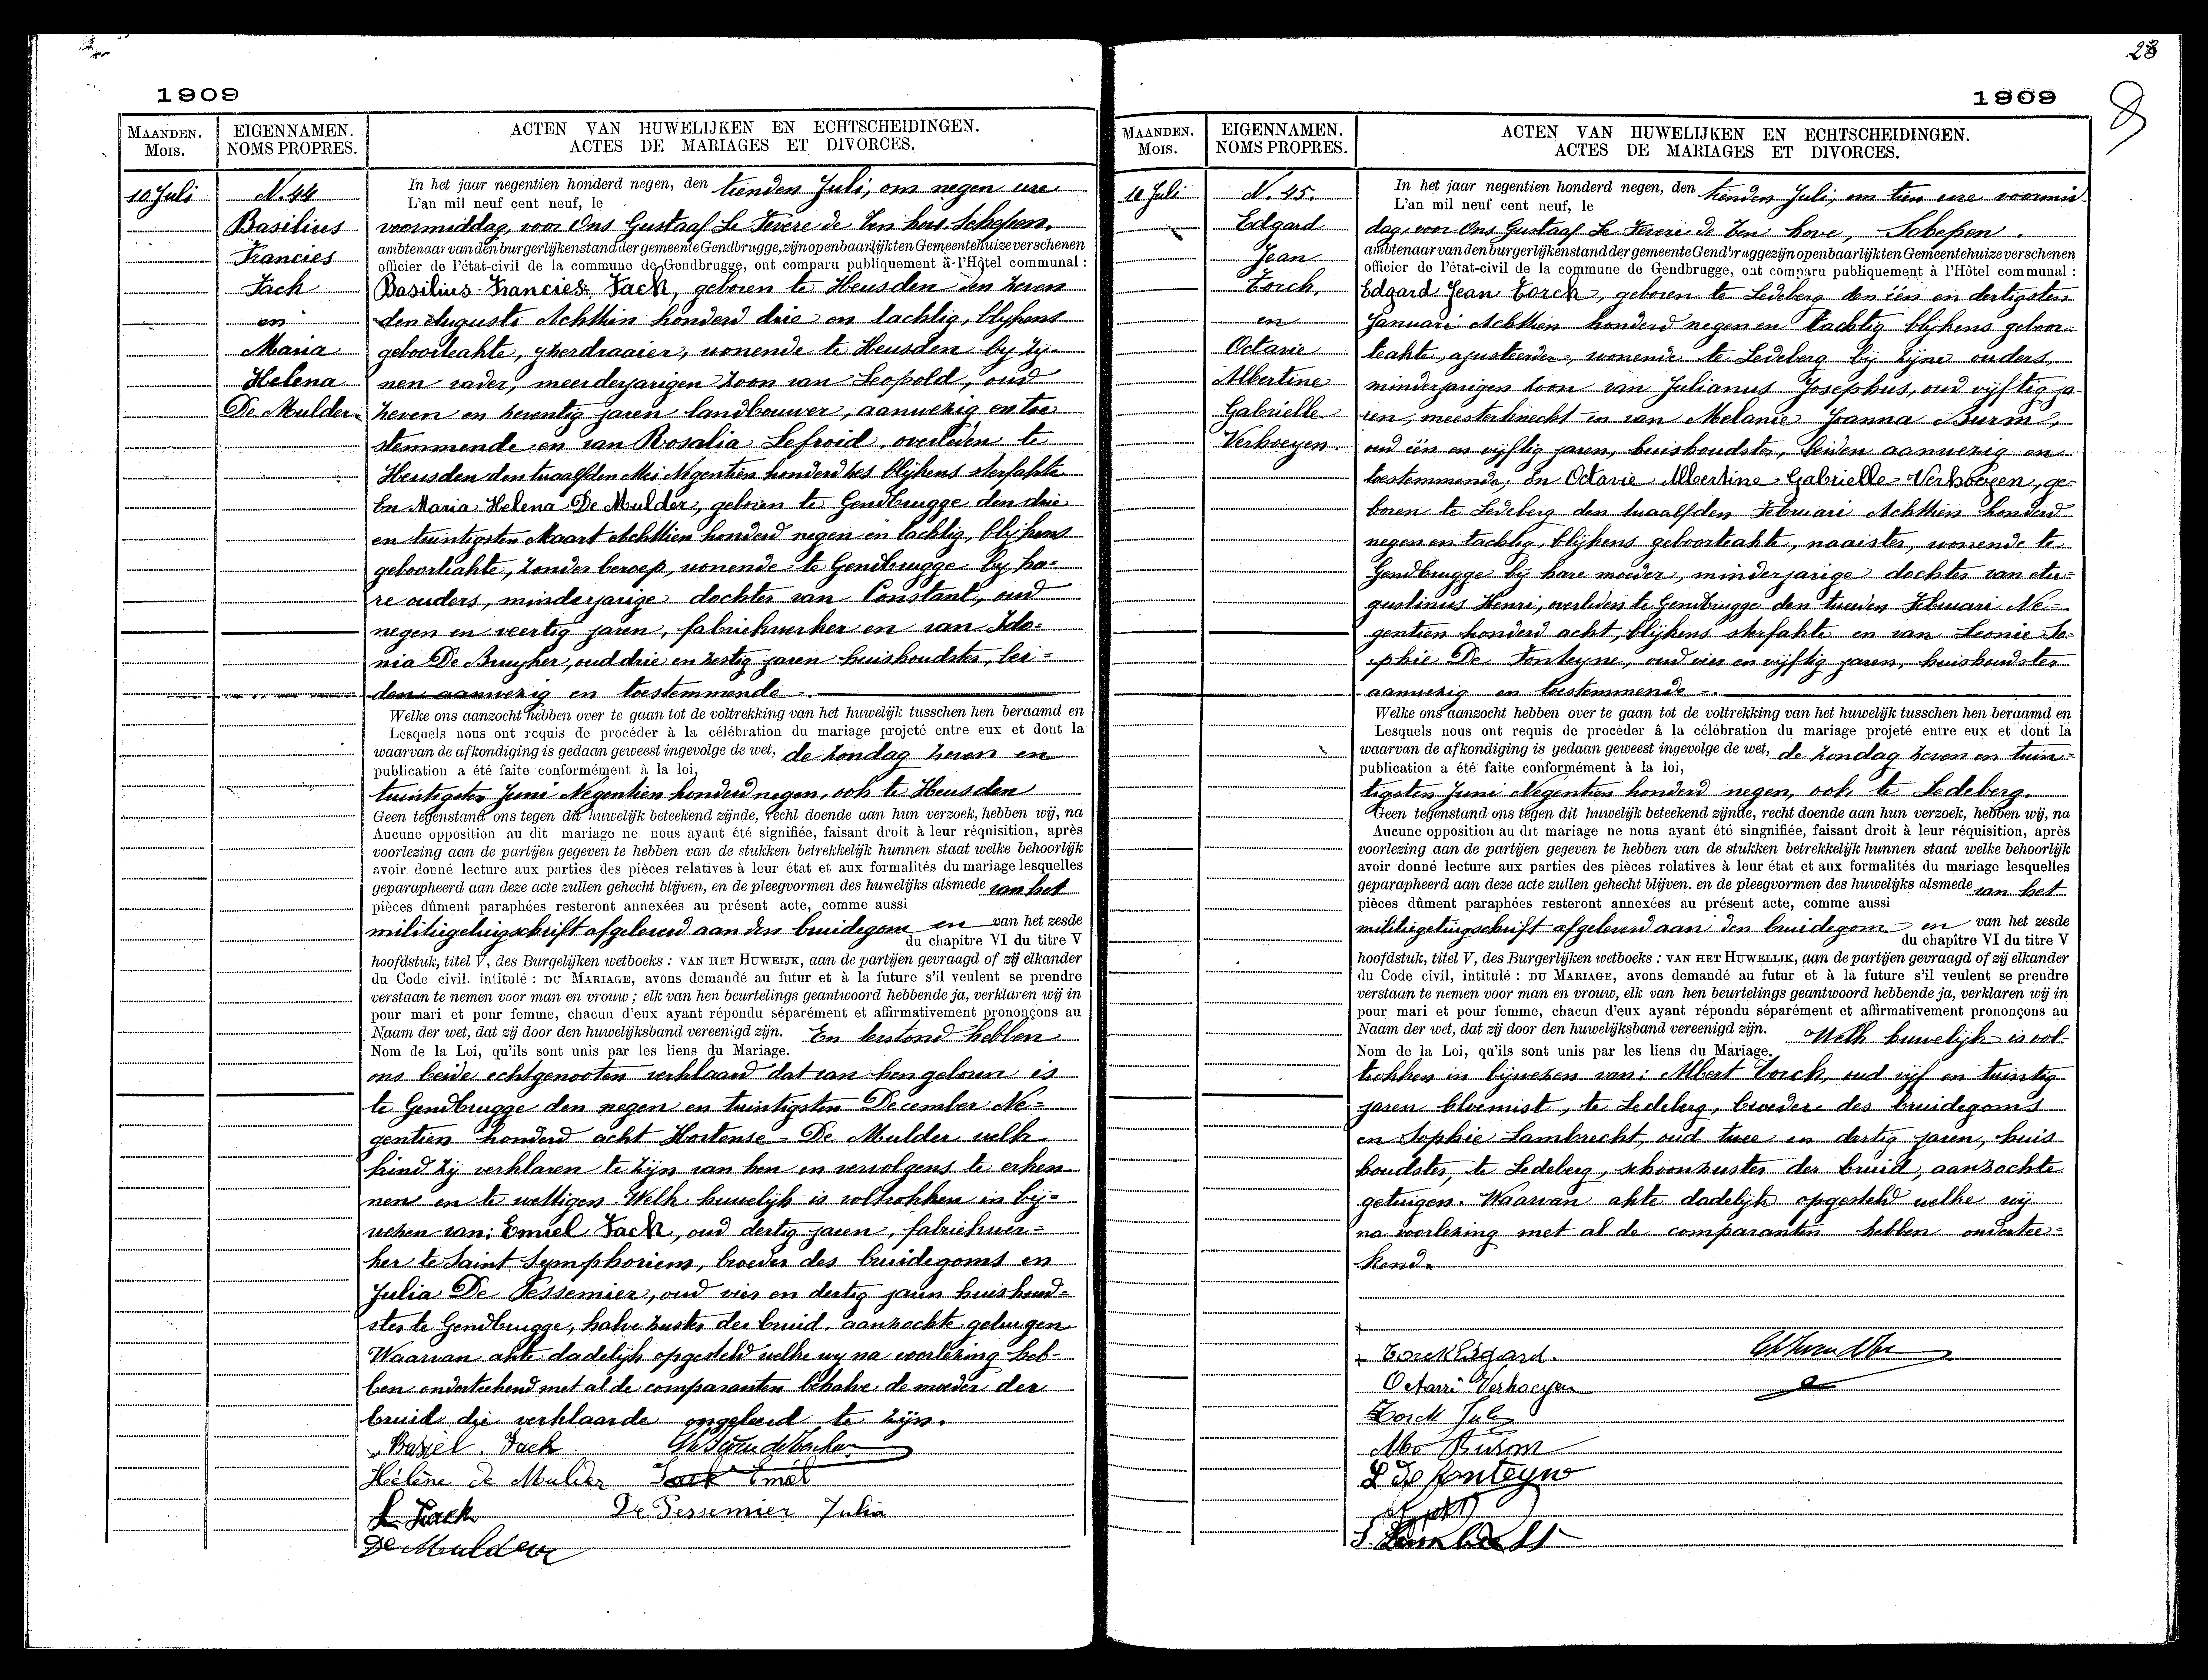 1909
MAANDEN.
Mois.
EIGENNAMEN.
NOMS PROPRES.
ACTEN VAN HUWELIJKEN EN ECHTSCHEIDINGEN.
ACTES DE MARIAGES ET DIVORCES.
10 Juli
N. 44
Basilius
Francies
Jack
en
Maria
Helena
De Mulder.
In het jaar negentien honderd negen, den tienden Juli, om negen ure
L'an mil neuf cent neuf, le
voormiddag, voor Ons Gustaaf Le Fevere de Ten hove Schepen.
ambtenaar van den burgerlijken stand der gemeente Gendbrugge, zijn openbaarlijk ten Gemeentehuize verschenen
officier de l'état-civil de la commune de Gendbrugge, ont comparu publiquement à l'Hôtel communal :
Basilius Francies Jack, geboren te Heusden den zeven
den Augusti Achttien honderd drie en tachtig, blijkens
geboorteakte, yzerdraaier, wonende te Heusden by zy-
nen vader, meerderjarigen zoon van Leopold, oud
zeven en zeventig jaren landbouwer, aanwezig en toe
stemmende en van Rosalia Lefroid, overleden te
Heusden den twaalfden Mei Negentien honderd zes blijkens sterfakte
En Maria Helena De Mulder, geboren te Gendbrugge den drie
en twintigsten Maart Achttien honderd negen en tachtig, blijkens
geboorteakte, zonder beroep, wonende te Gendbrugge by ha-
re ouders, minderjarige dochter van Constant, oud
negen en veertig jaren, fabriekwerker en van Ido-
nia De Bruyker, oud drie en zestig jaren huishoudster, bei-
den aanwezig en toestemmende.
Welke ons aanzocht hebben over te gaan tot de voltrekking van het huwelijk tusschen hen beraamd en
Lesquels nous ont requis de procéder à la célébration du mariage projeté entre eux et dont la
waarvan de afkondiging is gedaan geweest ingevolge de wet, de zondag zeven en
publication a été faite conformément à la loi,
twintigsten Juni Negentien honderd negen, ook te Heusden
Geen tegenstand ons tegen dit huwelijk beteekend zijnde, recht doende aan hun verzoek, hebben wij, na
Aucune opposition au dit mariage ne nous ayant été signifiée, faisant droit à leur réquisition, après
voorlezing aan de partijen gegeven te hebben van de stukken betrekkelijk hunnen staat welke behoorlijk
avoir donné lecture aux parties des pièces relatives à leur état et aux formalités du mariage lesquelles
geparapheerd aan deze acte zullen gehecht blijven, en de pleegvormen des huwelijks alsmede van het
pièces dûment paraphées resteront annexées au présent acte, comme aussi
militiegetuigschrift afgeleverd aan den bruidegom en van het zesde
du chapitre VI du titre V
hoofdstuk, titel V, des Burgelijken wetboeks : VAN HET HUWELIJK, aan de partijen gevraagd of zij elkander
du Code civil. intitulé : DU MARIAGE, avons demandé au futur et à la future s'il veulent se prendre
verstaan te nemen voor man en vrouw ; elk van hen beurtelings geantwoord hebbende ja, verklaren wij in
pour mari et pour femme, chacun d'eux ayant répondu séparément et affirmativement prononçons au
Naam der wet, dat zij door den huwelijksband vereenigd zijn. En terstond hebben
Nom de la Loi, qu'ils sont unis par les liens du Mariage.
ons beide echtgenooten verklaard dat van hen geboren is
te Gendbrugge den negen en twintigsten December Ne-
gentien honderd acht Hortense De Mulder welk
kind zij verklaren te zijn van hen en vervolgens te erken
nen en te wettigen. Welk huwelijk is voltrokken in bij-
wezen van: Emiel Jack, oud dertig jaren, fabriekwer-
ker te Saint Symphoriens, broeder des bruidegoms en
Julia De Pessemier, oud vier en dertig jaren huishoud-
ster te Gendbrugge, halve zuster der bruid, aanzochte getuigen
Waarvan akte dadelijk opgesteld welke wy na voorlezing heb-
ben onderteekend met al de comparanten behalve de moeder der
bruid die verklaarde ongeleerd te zijn.
Baziel. Jack
Hélène de Mulder Jack Emiel
L Jack De Pessemier Julia
De Mulder
28
1909
8
MAANDEN.
Mois.
EIGENNAMEN.
NOMS PROPRES.
ACTEN VAN HUWELIJKEN EN ECHTSCHEIDINGEN.
ACTES DE MARIAGES ET DIVORCES.
10 Juli
N. 45.
Edgard
Jean
Torck,
en
Octavie
Albertine
Gabrielle
Verhoeyen.
In het jaar negentien honderd negen, den tienden Juli, om tien ure voormid-
L'an mil neuf cent neuf, le
dag, voor Ons Gustaaf Le Fevere de Ten hove, Schepen.
ambtenaar van den burgerlijken stand der gemeente Gend'rugge zijn openbaarlijk ten Gemeentehuize verschenen
officier de l'état-civil de la commune de Gendbrugge, ont comparu publiquement à l'Hôtel communal :
Edgard Jean Torck, geboren te Ledeberg den één en dertigsten
Januari Achttien honderd negen en tachtig blijkens geboor-
teakte, ajusteerder, wonende te Ledeberg bij zijne ouders,
minderjarigen zoon van Julianus Josephus, oud vijftig ja-
ren, meesterknecht en van Melanie Joanna Burm,
oud één en vijftig jaren, huishoudster, beiden aanwezig en
toestemmende, En Octavie Albertine Gabrielle Verhoeyen, ge-
boren te Ledeberg den twaalfden Februari Achttien honderd
negen en tachtig, blijkens geboorteakte, naaister, wonende te
Gendbrugge bij hare moeder, minderjarige dochter van Au-
gustinus Henri, overleden te Gendbrugge den tweeden Februari Ne-
gentien honderd acht, blijkens sterfakte en van Leonie So-
phie De Fonteyne, oud vier en vijftig jaren, huishoudster
aanwezig en toestemmende.
Welke ons aanzocht hebben over te gaan tot de voltrekking van het huwelijk tusschen hen beraamd en
Lesquels nous ont requis de procéder à la célébration du mariage projeté entre eux et dont la
waarvan de afkondiging is gedaan geweest ingevolge de wet, de zondag zeven en twin-
publication a été faite conformément à la loi,
tigsten Juni Negentien honderd negen, ook te Ledeberg.
Geen tegenstand ons tegen dit huwelijk beteekend zijnde, recht doende aan hun verzoek, hebben wij, na
Aucune opposition au dit mariage ne nous ayant été singnifiée, faisant droit à leur réquisition, après
voorlezing aan de partijen gegeven te hebben van de stukken betrekkelijk hunnen staat welke behoorlijk
avoir donné lecture aux parties des pièces relatives à leur état et aux formalités du mariage lesquelles
geparapheerd aan deze acte zullen gehecht blijven. en de pleegvormen des huwelijks alsmede van het
pièces dûment paraphées resteront annexées au présent acte, comme aussi
militiegetuigschrift afgeleverd aan den bruidegom en van het zesde
du chapitre VI du titre V
hoofdstuk, titel V, des Burgerlijken wetboeks : VAN HET HUWELIJK, aan de partijen gevraagd of zij elkander
du Code civil, intitulé : DU MARIAGE, avons demandé au futur et à la future s'il veulent se prendre
verstaan te nemen voor man en vrouw, elk van hen beurtelings geantwoord hebbende ja, verklaren wij in
pour mari et pour femme, chacun d'eux ayant répondu séparément et affirmativement prononçons au
Naam der wet, dat zij door den huwelijksband vereenigd zijn. Welk huwelijk is vol-
Nom de la Loi, qu'ils sont unis par les liens du Mariage.
trokken in bijwezen van: Albert Torck, oud vijf en twintig
jaren bloemist, te Ledeberg, broeder des bruidegoms
en Sophie Lambrecht, oud twee en dertig jaren, huis
houdster, te Ledeberg, schoonzuster der bruid, aanzochte
getuigen. Waarvan akte dadelijk opgesteld welke wij
na voorlezing met al de comparanten hebben ondertee-
kend.
Torck Edgard.
Octavie Verhoeyen
Torck Jules
Burm
L De fonteyne
S. Lambrecht